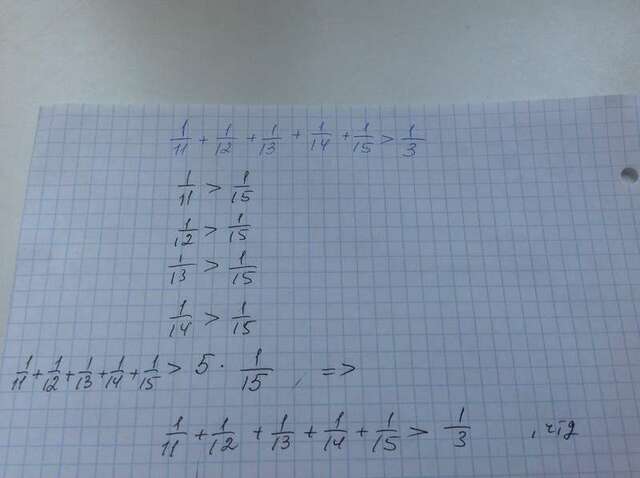 1/11 + 1/12 + 1/13 + 1/14 + 1/15 > 1/3
1/11 > 1/15
1/12 > 1/15
1/13 > 1/15
1/14 > 1/15
1/11 + 1/12 + 1/13 + 1/14 + 1/15 > 5 · 1/15, =>
1/11 + 1/12 + 1/13 + 1/14 + 1/15 > 1/3 , чтд